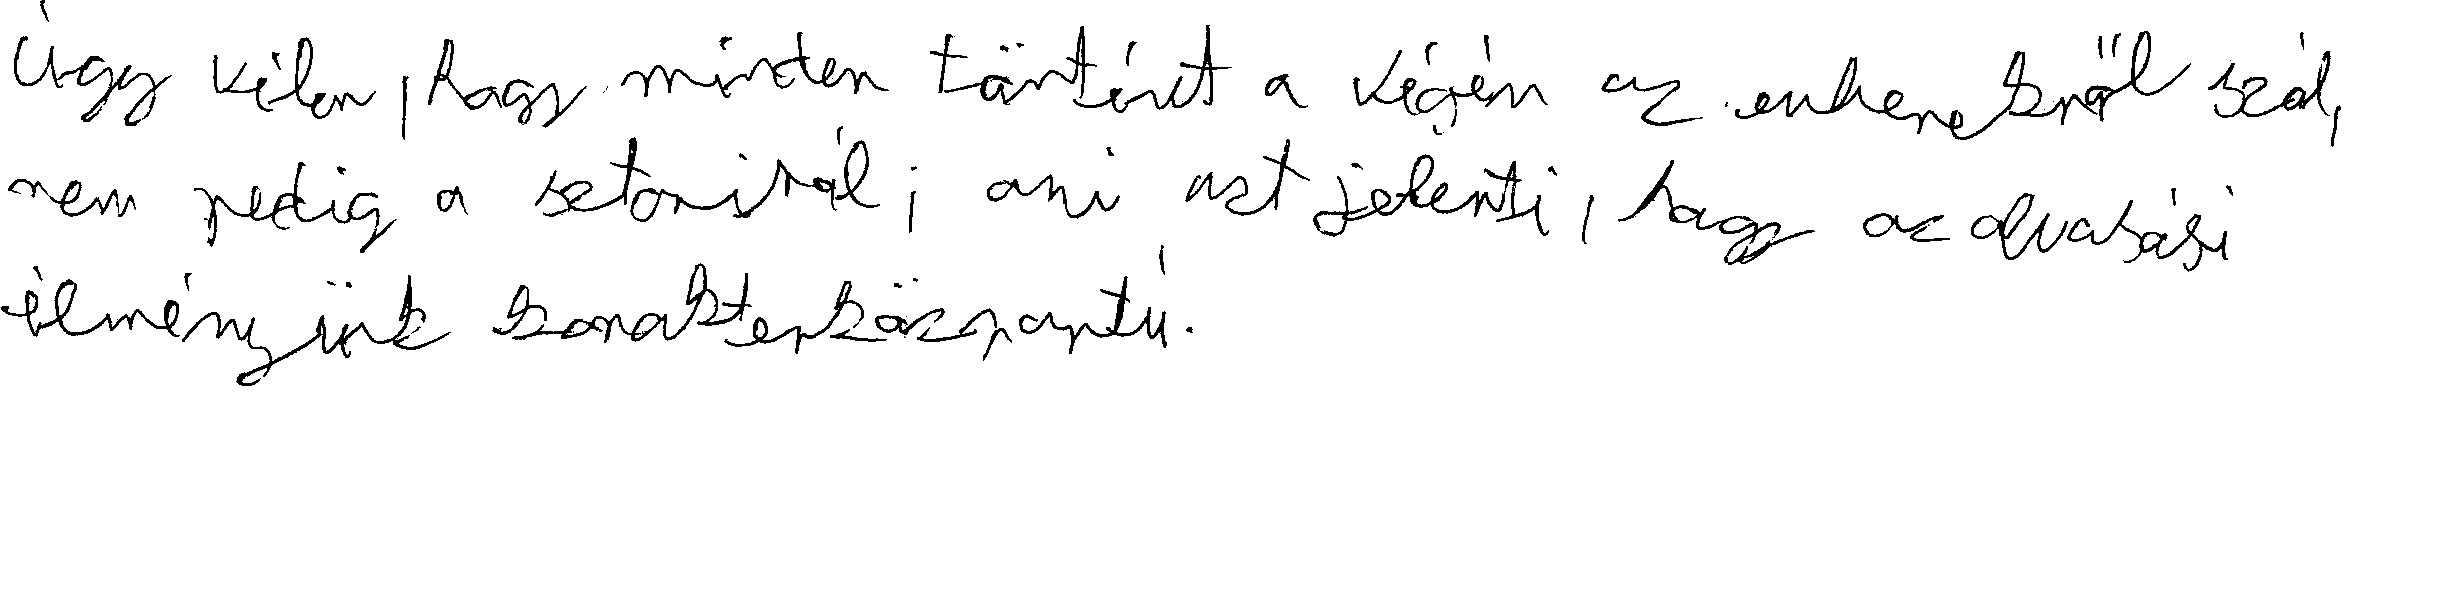 Úgy vélem, hogy minden történet a végén az emberekről szól,
nem pedig a sztoriról, ami azt jelenti, hogy az olvasási
élményünk karakterközpontú.